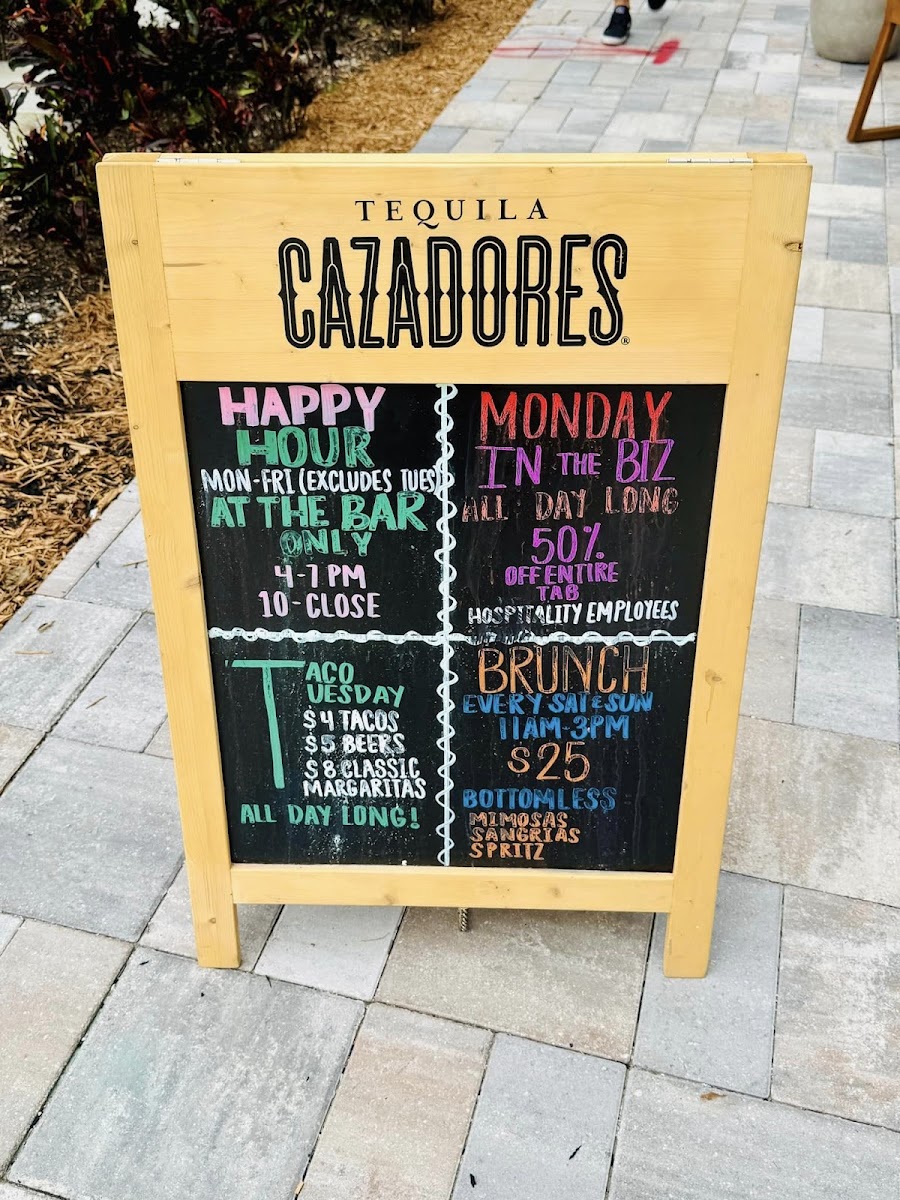 TEQUILA
CAZADORES®
HAPPY
HOUR
MON-FRI (EXCLUDES TUES)
AT THE BAR
ONLY
4-7 PM
10-CLOSE
MONDAY
IN THE BIZ
ALL DAY LONG
50%
OFF ENTIRE
TAB
HOSPITALITY EMPLOYEES
TACO
TUESDAY
$4 TACOS
$5 BEERS
$8 CLASSIC
MARGARITAS
ALL DAY LONG!
BRUNCH
EVERY SAT & SUN
11AM-3PM
$25
BOTTOMLESS
MIMOSAS
SANGRIAS
SPRITZ